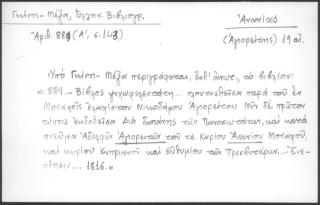 Γκίνη - Μέξα, Ελλην. Βιβλιογρ.
Ἀριθ. 889 (Α', σ. 143)
Ἀνανίας
(Ἀγορέτσης) 19 αἰ.
Ὑπὸ Γκίνη - Μέξα περιγράφεται, ἐνθ' ἀνωτ., τὸ βιβλίον:
« 889.- Βίβλος ψυχωφελεστάτη... πονηθεῖσα παρὰ τοῦ ἐν
Μοναχοῖς ἐλαχίστου Νικοδήμου Ἁγιορείτου Νῦν δὲ πρῶτον
τύποις ἐκδοθεῖσα διὰ δαπάνης τῶν Πανοσιωτάτων, καὶ κατὰ
πνεῦμα Ἀδελφῶν Ἀγορετῶν τοῦ τε Κυρίου Ἀνανίου Μοναχοῦ,
καὶ κυρίου Κυπριανοῦ καὶ Εὐθυμίου τῶν Πρεσβυτέρων... Ἐνε-
τίησιν... 1816.»